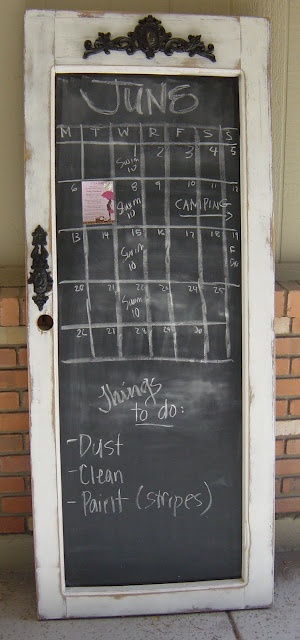 JUNE
M T W R F S S
1 2 3 4 5
Swim
10
6 8 9 10 11 12
Swim
10
CAMPING
13 14 15 16 17 18 19
Swim
10
20 21 22 23 24 25
Swim
10
28 29 30
Things
to do:
-Dust
-Clean
-Paint (stripes)